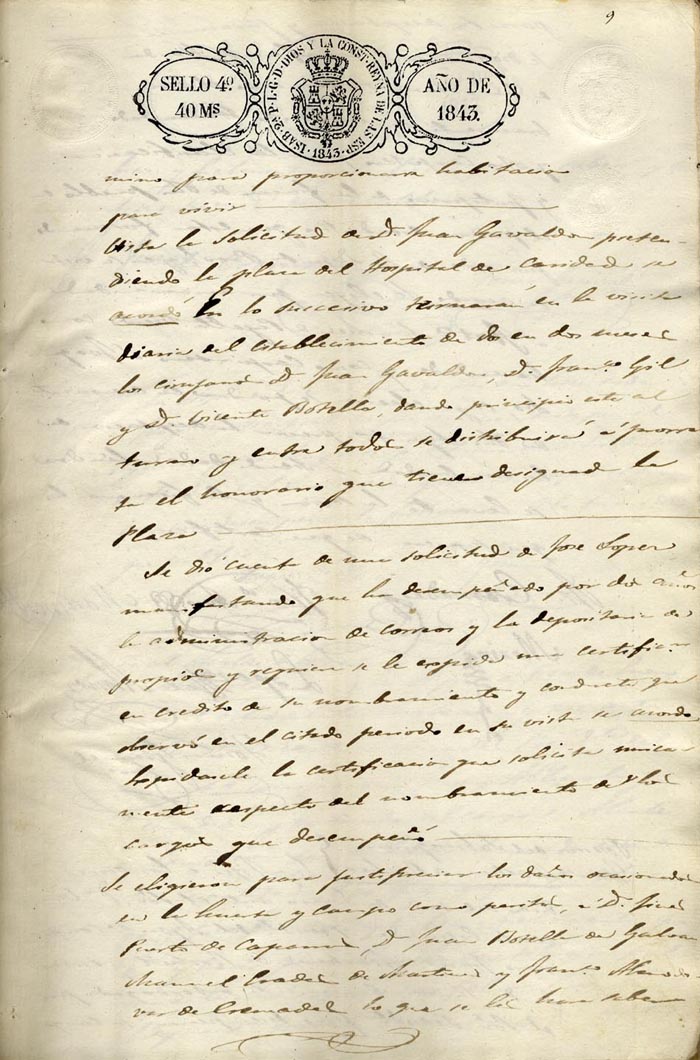 9
SELLO 4º
40 Mˢ
ISAB. 2ª P. L. G. D. DIOS Y LA CONST. REYNA DE LAS ESP.
1843
AÑO DE
1843.
mino para proporcionarse habitacion
para vivir
Vista la solicitud de D. Juan Gavaldon preten-
diendo la plaza del Hospital de Caridad se
acordó En lo succesivo turnarán en la visita
diaria del establecimiento de dos en dos meses
los cirujanos D. Juan Gavaldon, D. Franco. Gil
y D. Vicente Botella, dando principio este al
turno y entre todos se distribuirá á prorra
ta el honorario que tiene designado la
Plaza
Se dió cuenta de una solicitud de Jose Lopez
manifestando que ha desempeñado por dos años
la administracion de correos y la depositaria de
propios y requiere se le expida una certific.
en credito de su nombramiento y conducta que
observó en el citado periodo en su vista se acordo
la certificacion que solicita unica
mente respecto del nombramiento de los
cargos que desempeñó
Se eligieron para justipreciar los daños ocasionados
en la huerta y campo como peritos, á D. José
Puerto de D. Juan Botella de
Manuel de Martinez y Franco.
de lo que se les